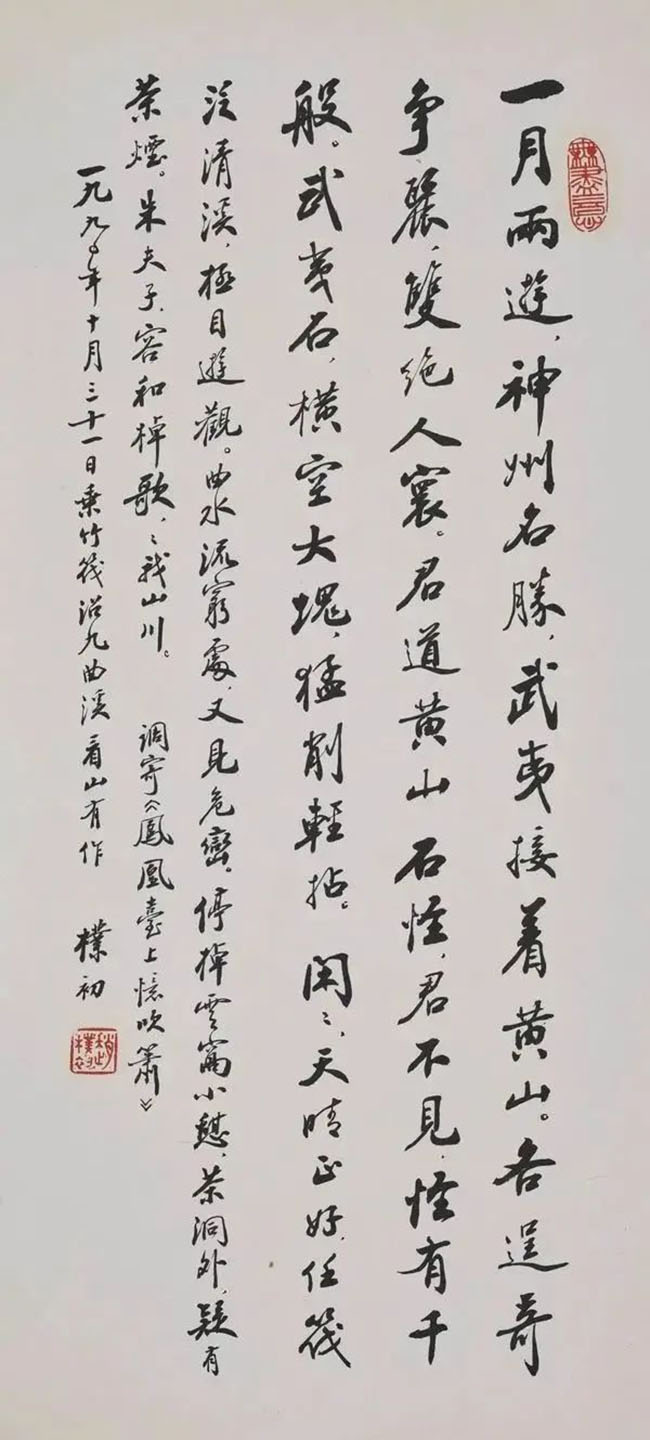 一月兩遊，神州名勝，武夷接着黄山。各逞奇
争麗，雙絶人寰。君道黄山石怪，君不見，怪有千
般。武夷石，横空大塊，猛削輕拈。 閑〻，天晴正好，任筏
泛清溪，極目遊觀。曲水流窮處，又見危巒。停棹雲窩小憩，茶洞外，疑有
茶煙。朱夫子，容和棹歌，〻我山川。 調寄《鳳凰臺上憶吹簫》
一九九〇年十月三十一日乘竹筏沿九曲溪看山有作 樸初
無盡意
趙樸初